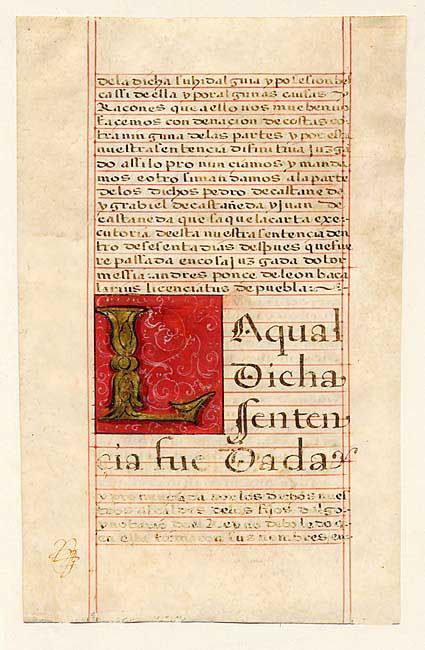 dela dicha su hidalguia y posesion bel
cassi de ella y por algunas causas y
Racones que a ello nos mueben no
facemos condenacion de costas co
tra ninguna de las partes y por esta
nuestra sentencia difinitiua Juzga
do assi lo pronunciamos y manda
mos e otrosi mandamos a la parte
de los dichos pedro de castañeda
y grabiel de castañeda y Juan de
castañeda que saque la carta exe
cutoria de esta nuestra sentencia den
tro de sesenta dias despues que fue
re passada en cosa juzgada dotor
messia: andres ponce de leon baca
larius licenciatus de puebla:
LAqual
Dicha
senten
cia fue Dada
y pronunciada por los dichos nues
tros alcaldes de los fijos dalgo
y notario del Reyno de toledo